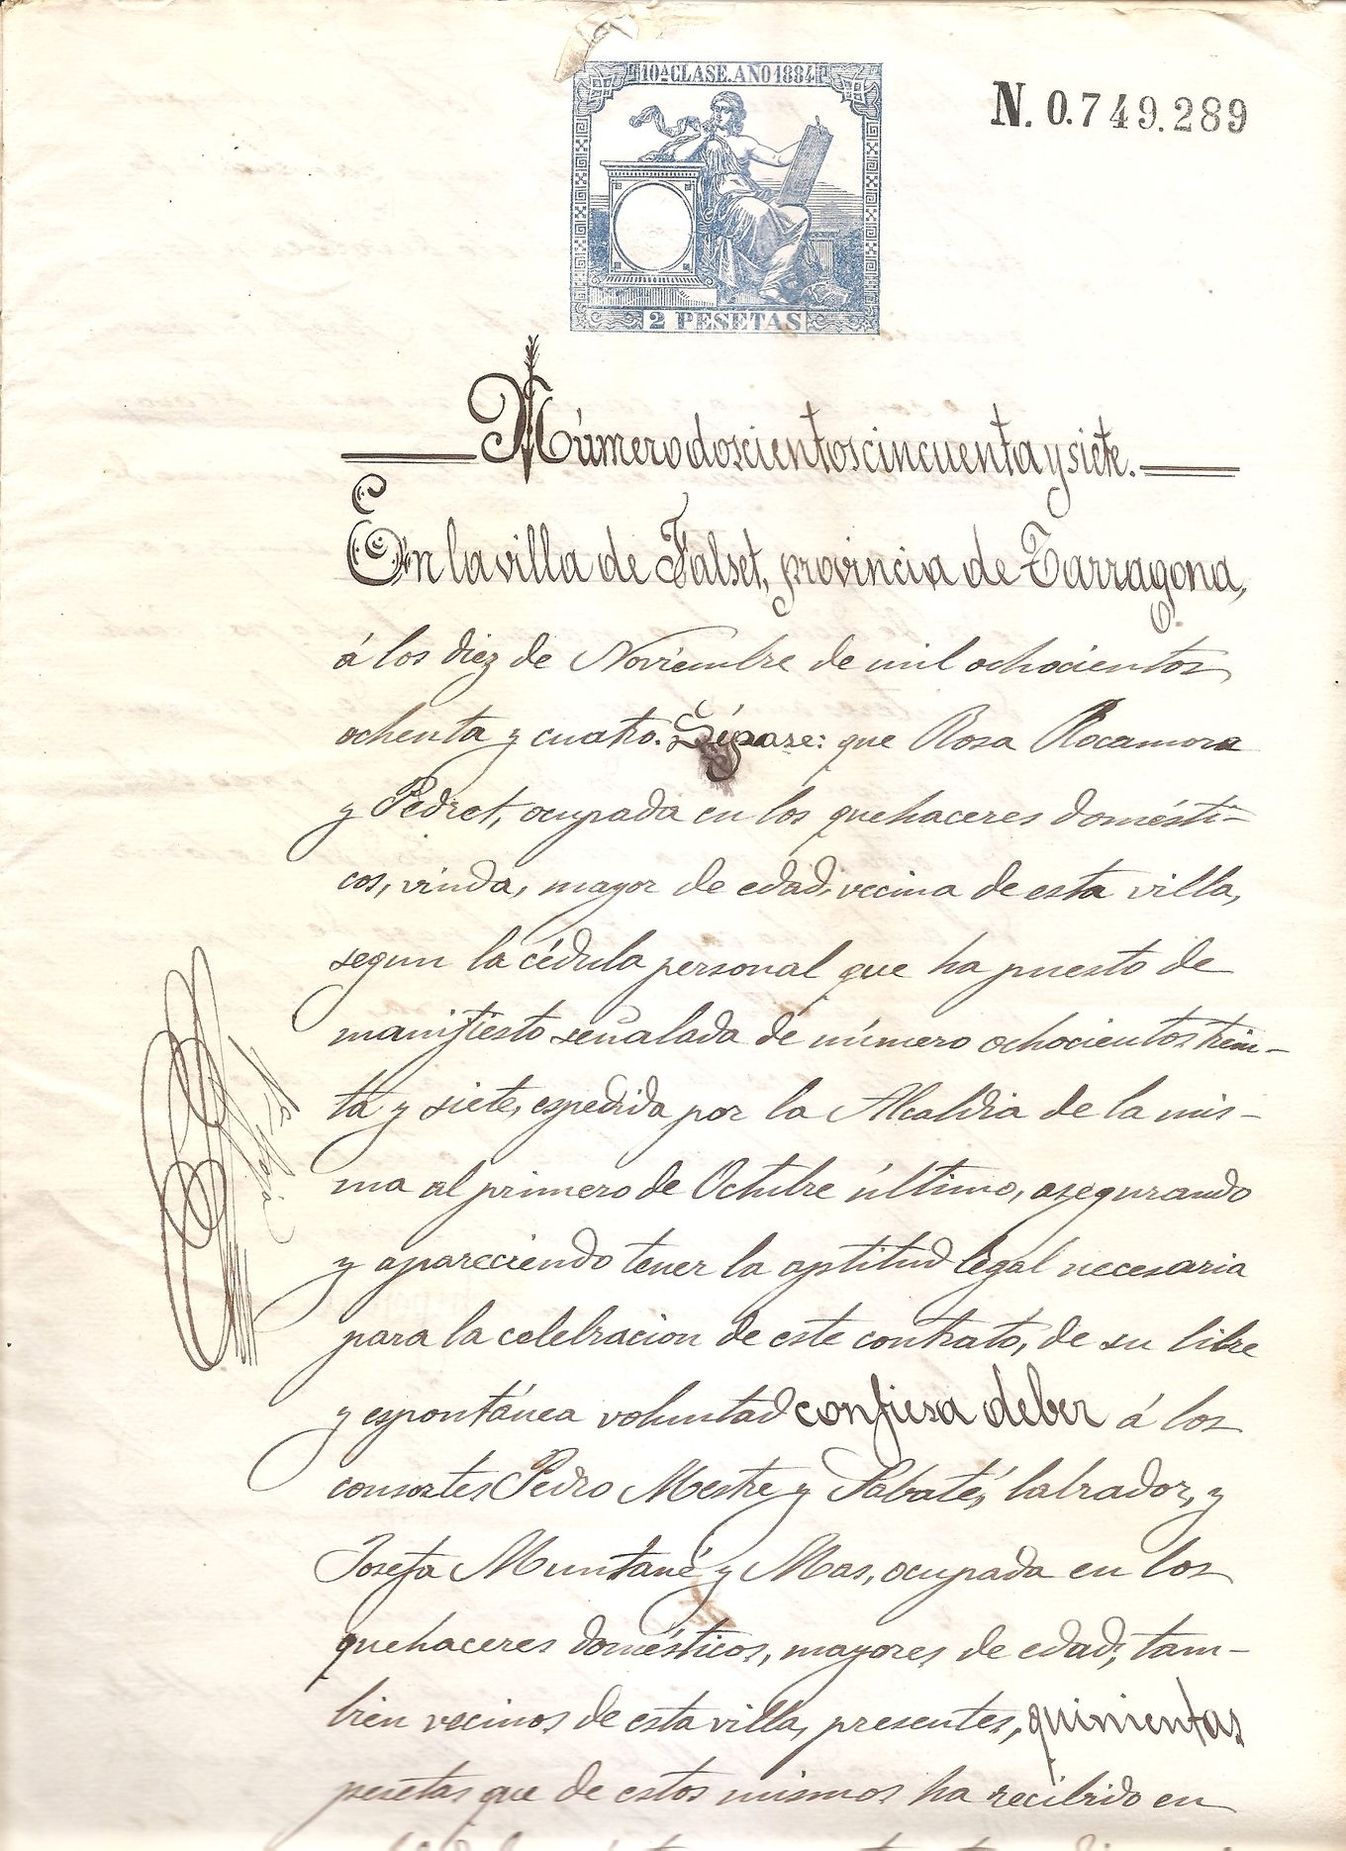 10ª CLASE. AÑO 1884
N. 0.749.289
2 PESETAS
Número doscientos cincuenta y siete.
En la villa de Falset, provincia de Tarragona,
á los diez de Noviembre de mil ochocientos
ochenta y cuatro. Sépase: que Rosa Rocamora
y Pedret, ocupada en los quehaceres domésti-
cos, viuda, mayor de edad, vecina de esta villa,
segun la cédula personal que ha puesto de
manifiesto señalada de número ochocientos trein-
ta y siete, espedida por la Alcaldia de la mis-
ma al primero de Octubre último, asegurando
y apareciendo tener la aptitud legal necesaria
para la celebracion de este contrato, de su libre
y espontánea voluntad confiesa deber á los
consortes Pedro Mestre y Sabaté, labrador, y
Josefa Muntané y Mas, ocupada en los
quehaceres domésticos, mayores de edad, tam-
bien vecinos de esta villa, presentes, quinientas
pesetas que de estos mismos ha recibido en